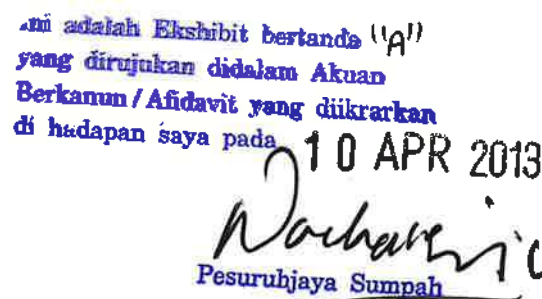 ini adalah Ekshibit bertanda "A"
yang dirujukan didalam Akuan
Berkanun / Afidavit yang diikrarkan
di hadapan saya pada 10 APR 2013
Pesuruhjaya Sumpah